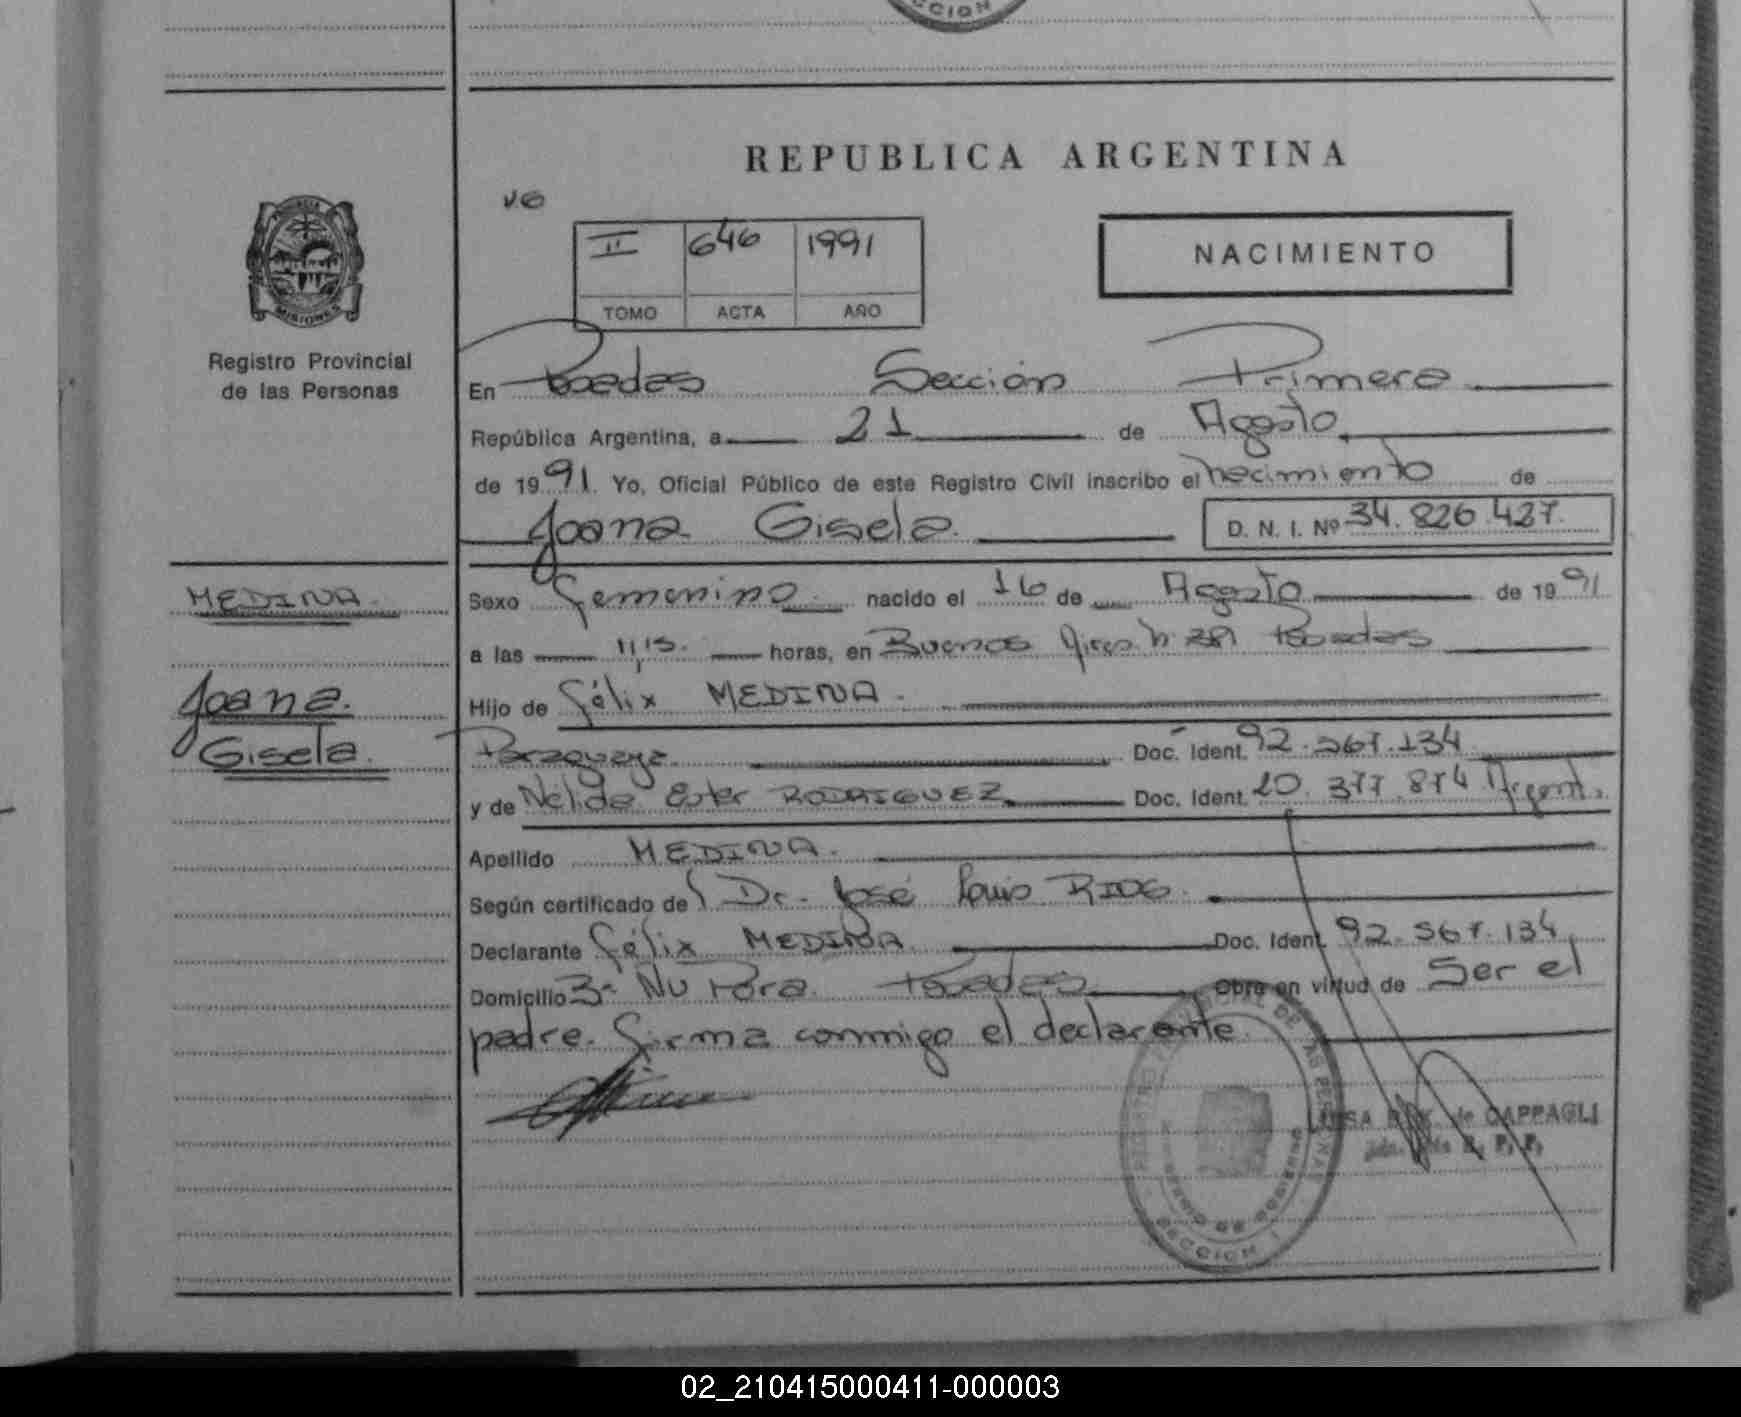 CCION
REPUBLICA ARGENTINA
II 646 1991
TOMO ACTA AÑO
NACIMIENTO
PROVINCIA
MISIONES
Registro Provincial
de las Personas
En Posadas Sección Primera
República Argentina, a 21 de Agosto
de 1991. Yo, Oficial Público de este Registro Civil inscribo el nacimiento de
Joana Gisela. D. N. I. Nº 34.826.427.
MEDINA.
Joana.
Gisela.
Sexo femenino. nacido el 16 de Agosto de 1991
a las 11,15. horas, en Buenos Aires Posadas
Hijo de félix MEDINA.
Paraguaya. Doc. Ident. 92.367.134
y de Nelida Ester RODRIGUEZ Doc. Ident. 20.377.874 Argent.
Apellido MEDINA.
Según certificado del Dr. José Luis RIOS.
Declarante félix MEDINA Doc. Ident. 92.367.134
Domicilio Nu Pora. Posadas Obra en virtud de Ser el
padre. firma conmigo el declarante.
de CAPPAGLI
SECCION I
02_210415000411-000003